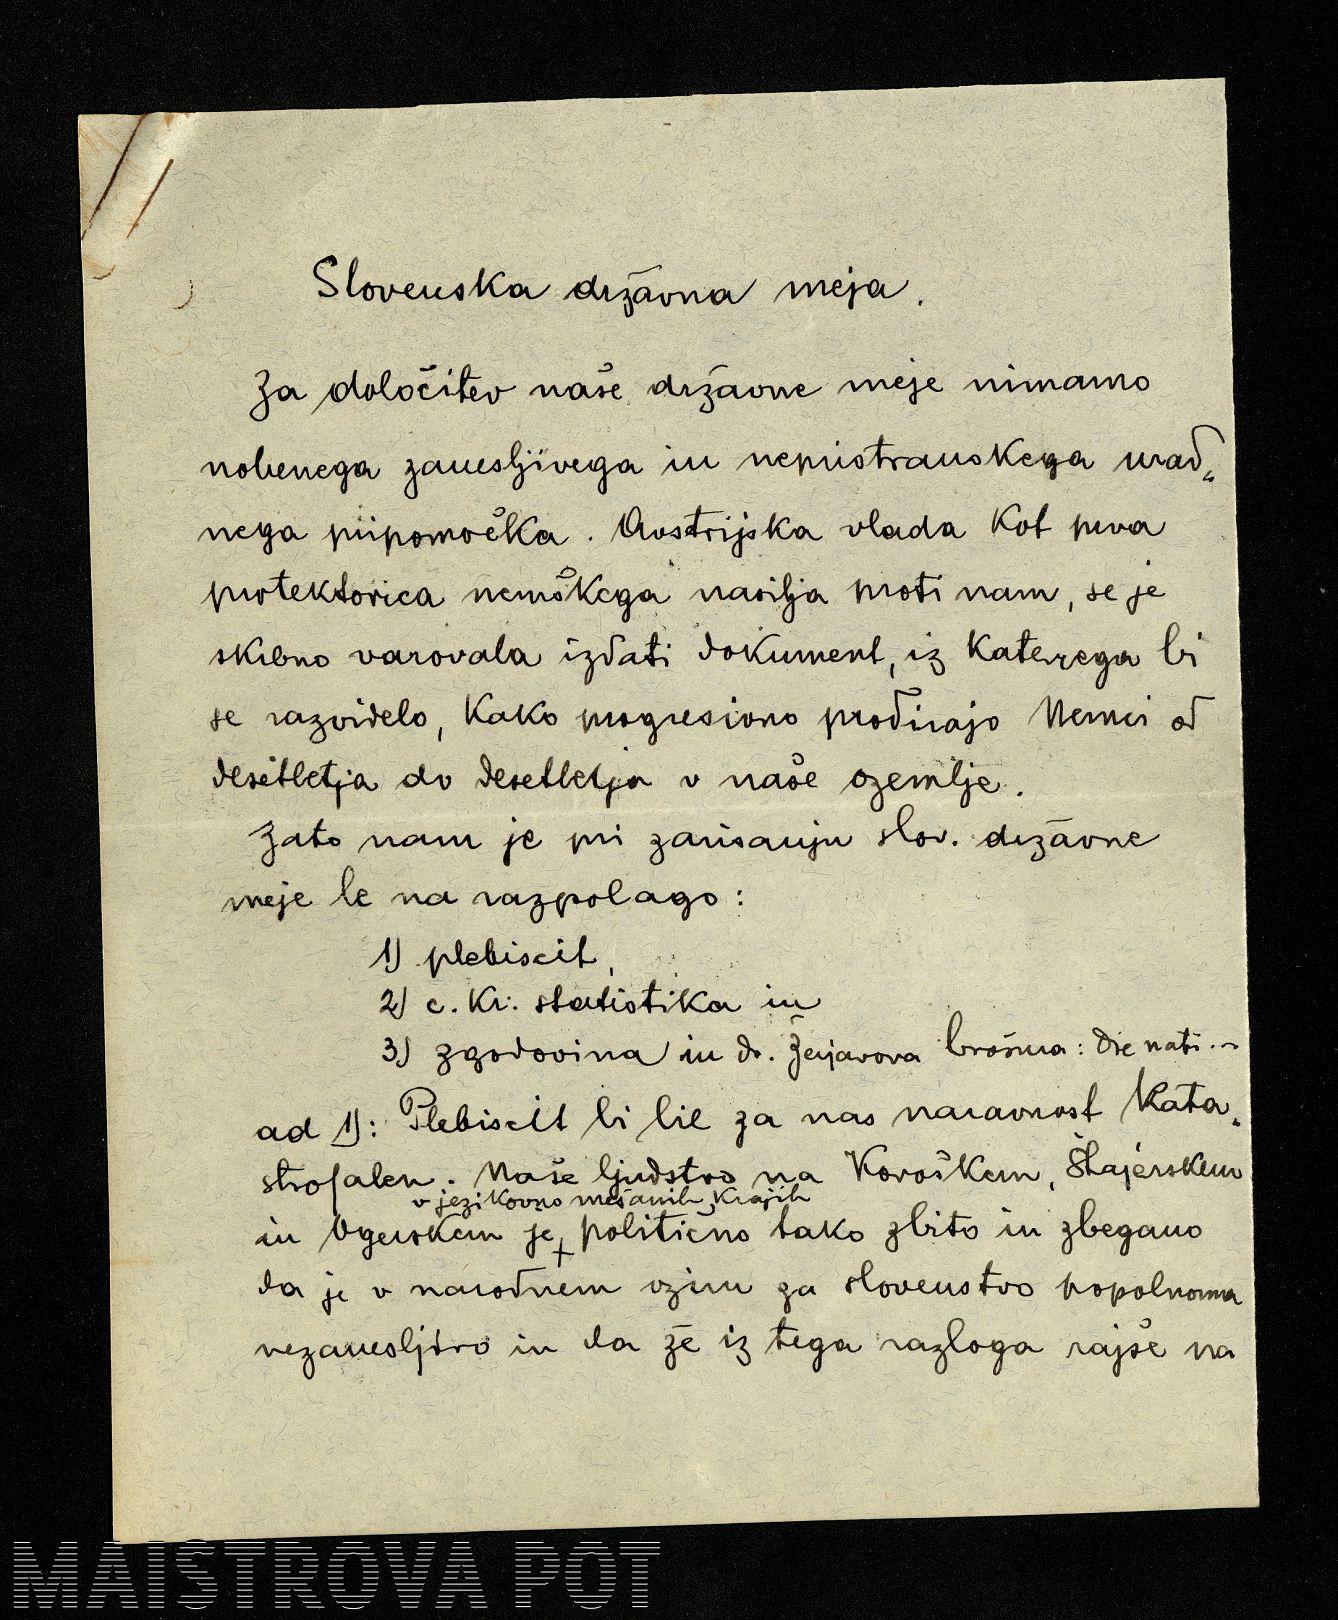 Slovenska državna meja.
Za določitev naše državne meje nimamo
nobenega zanesljivega in nepristranskega urad-
nega pripomočka. Avstrijska vlada kot prva
protektorica nemškega nasilja proti nam, se je
skrbno varovala izdati dokument, iz katerega bi
se razvidelo, kako progresivno prodirajo Nemci od
desetletja do desetletja v naše ozemlje.
Zato nam je pri zarisanju slov. državne
meje le na razpolago:
1) plebiscit,
2) c. kr. statistika in
3) zgodovina in dr. Žerjavova brošura: Die nati...
ad 1): Plebiscit bi bil za nas naravnost kata-
strofalen. Naše ljudstvo na Koroškem, Štajerskem
v jezikovno mešanih krajih
in Ogerskem je + politično tako zbito in zbegano
da je v narodnem oziru za slovenstvo popolnoma
nezanesljivo in da že iz tega razloga rajše na
MAISTROVA POT